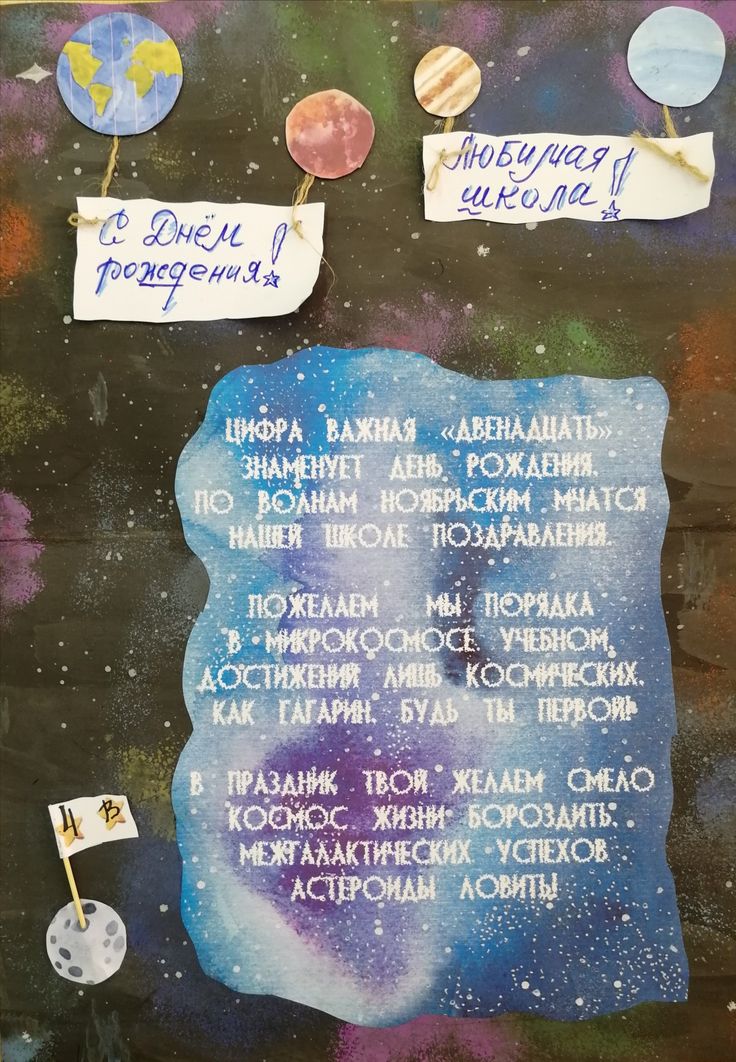 С Днём
рождения!
Любимая
школа!
ЦИФРА ВАЖНАЯ «ДВЕНАДЦАТЬ»
ЗНАМЕНУЕТ ДЕНЬ РОЖДЕНИЯ.
ПО ВОЛНАМ НОЯБРЬСКИМ МЧАТСЯ
НАШЕЙ ШКОЛЕ ПОЗДРАВЛЕНИЯ.
ПОЖЕЛАЕМ МЫ ПОРЯДКА
В МИКРОКОСМОСЕ УЧЕБНОМ,
ДОСТИЖЕНИЙ ЛИШЬ КОСМИЧЕСКИХ.
КАК ГАГАРИН, БУДЬ ТЫ ПЕРВОЙ!
В ПРАЗДНИК ТВОЙ ЖЕЛАЕМ СМЕЛО
КОСМОС ЖИЗНИ БОРОЗДИТЬ,
МЕЖГАЛАКТИЧЕСКИХ УСПЕХОВ
АСТЕРОИДЫ ЛОВИТЬ!
4 В